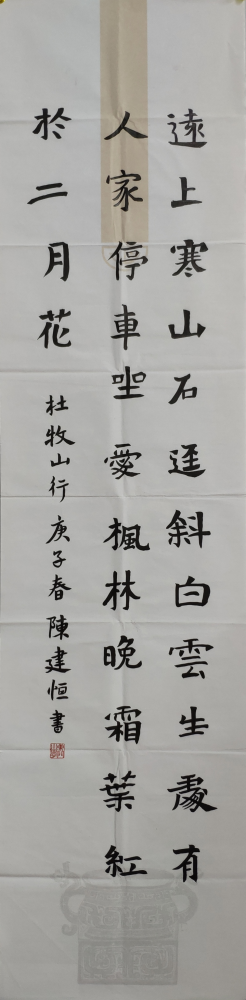 遠上寒山石逕斜白雲生處有
人家停車坐愛楓林晚霜葉紅
於二月花
杜牧山行庚子春陳建恒書